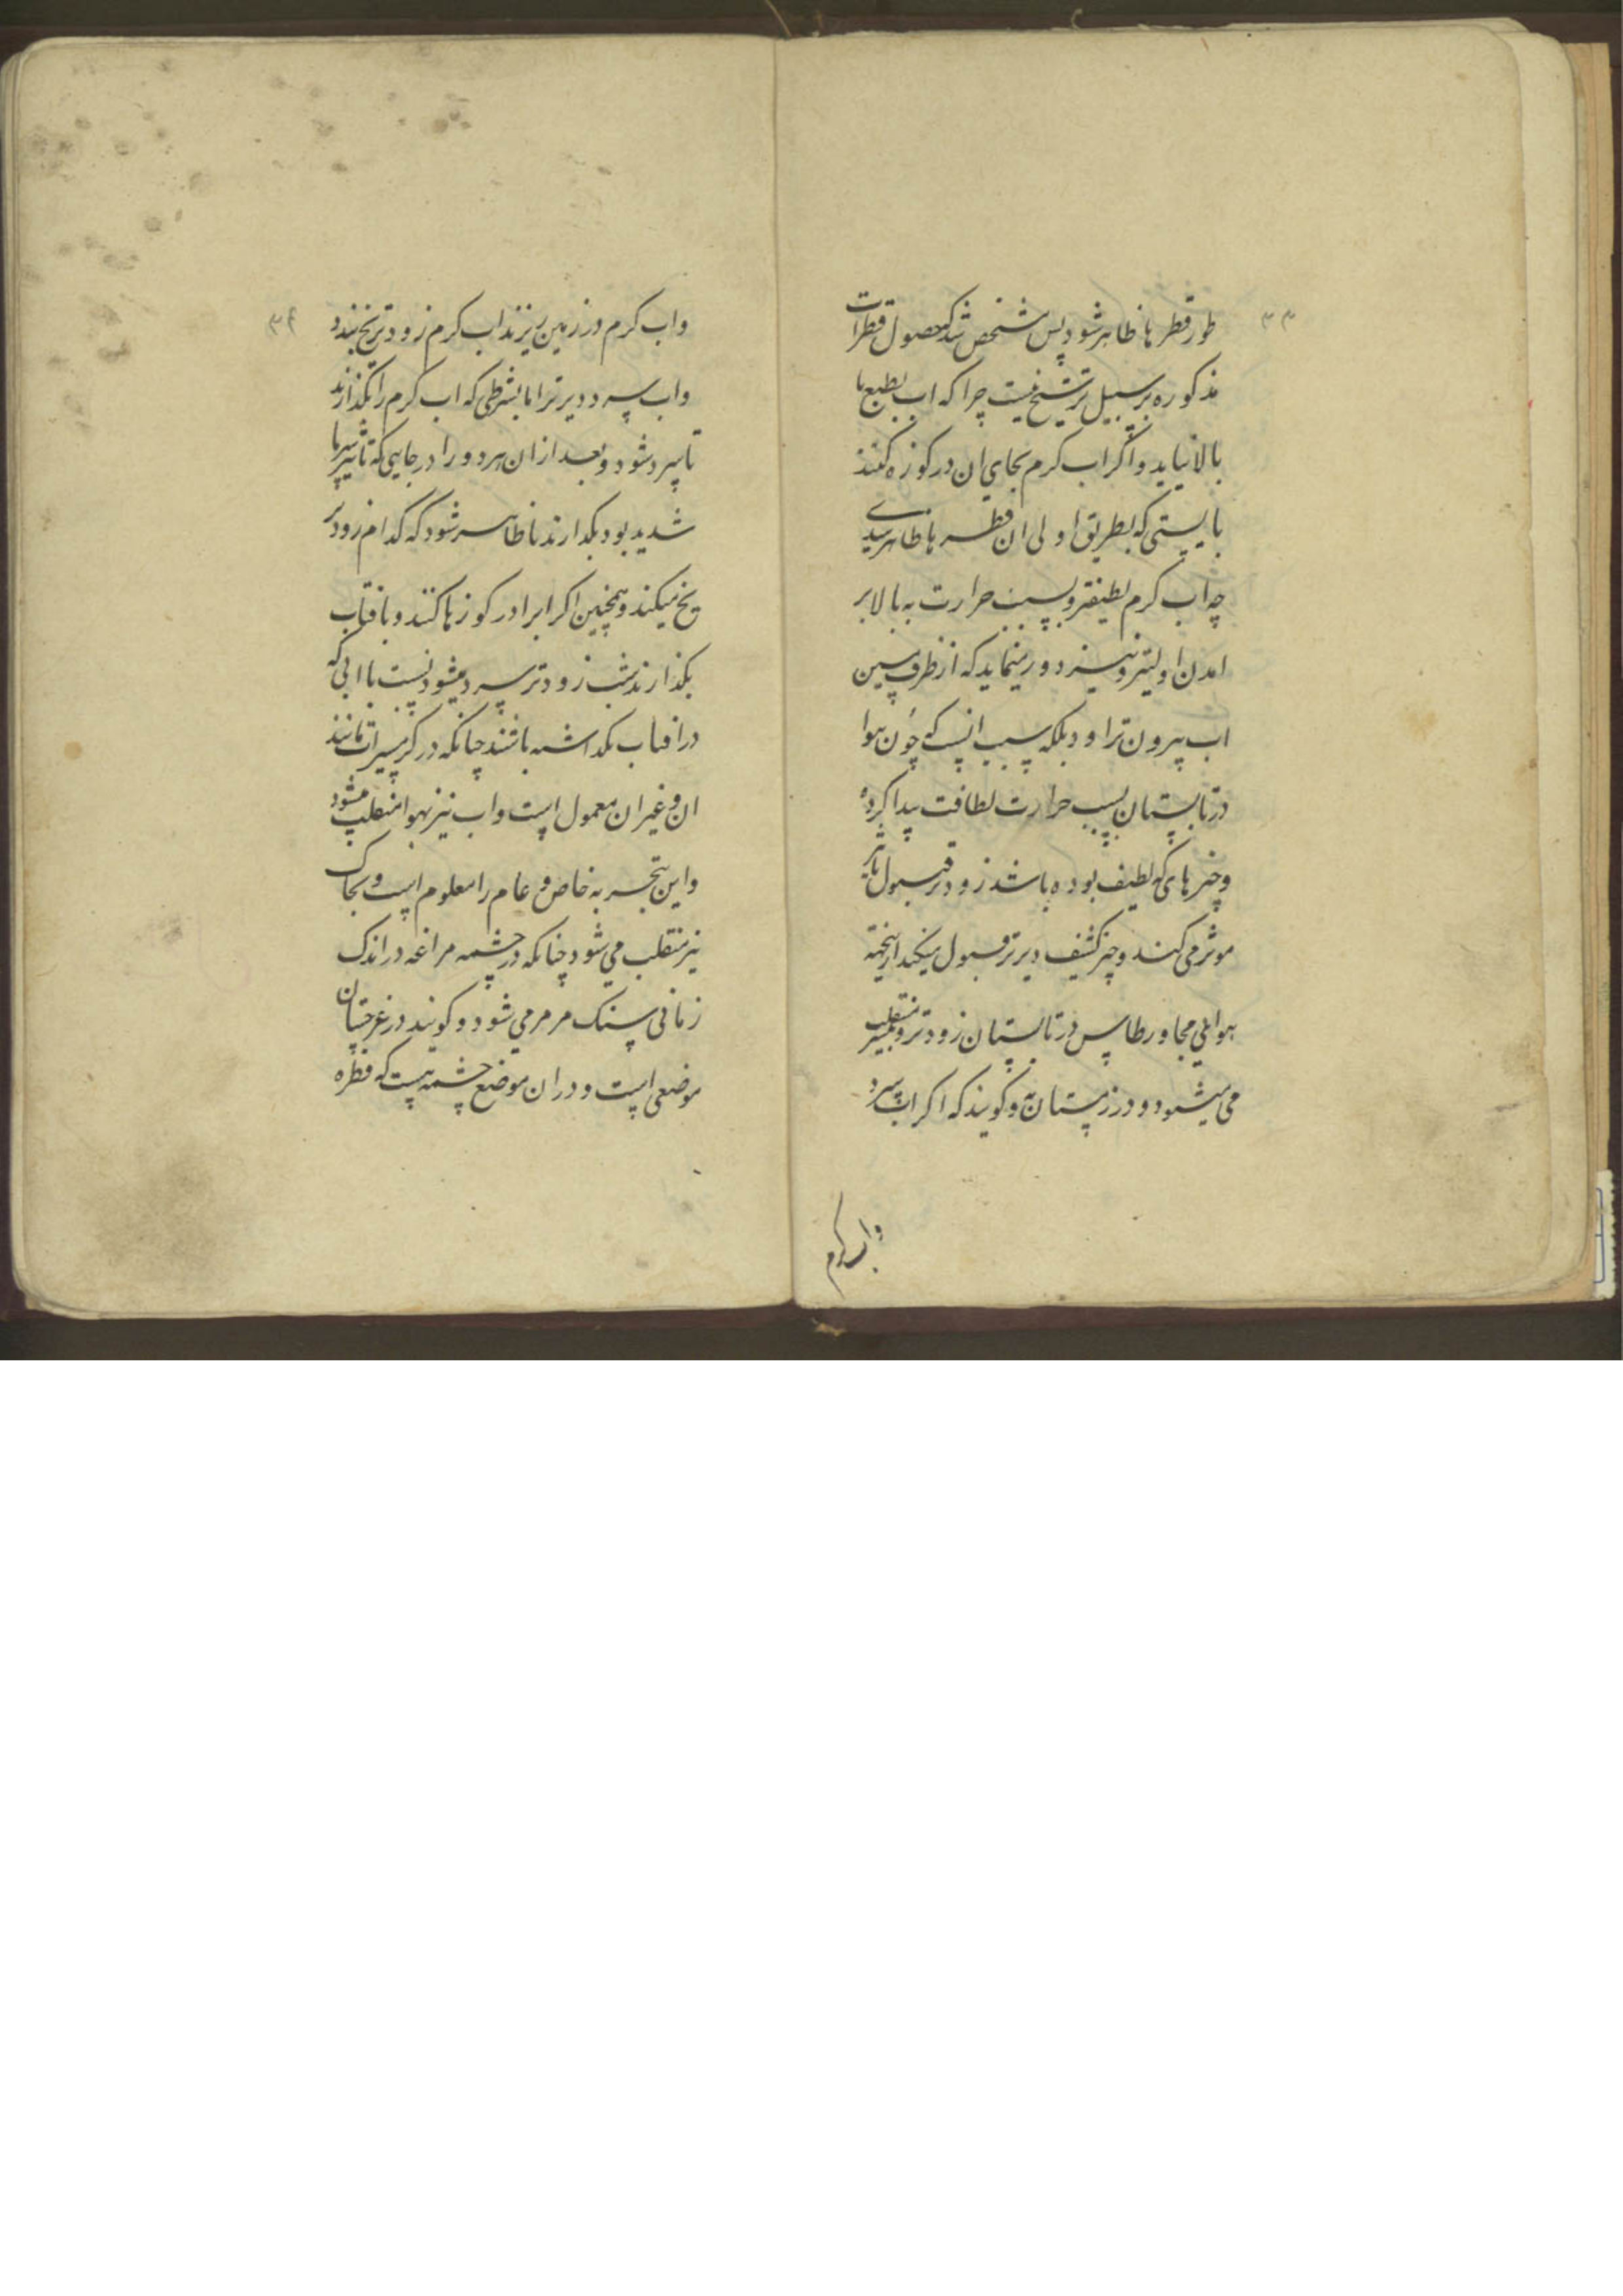 ۳۳
طور قطرها ظاهر شود پس مشخص شد که حصول قطرات
مذکوره بر سبیل ترشح نیست چرا که اب بطبع با
بالا نیاید و اگر اب کرم بجای ان در کوزه کنند
بایستی که بطریق اولی ان قطره ها ظاهر شدی
چه اب کرم لطیفتر و بسبب حرارت به بالا بر
امدن اولیتر و نیز دور مینماید که از ظرف سین
اب بیرون تراود بلکه سبب انست که چون هوا
در تابستان بسبب حرارت لطافت پیدا کرده
و چیزهای که لطیف بوده باشد زودتر قبول تاثیر
موثر می کند و چیز کثیف دیرتر قبول میکند از ینجهة
هوای مجاور طاس در تابستان زودتر و بیشتر منقلب
می شود و در زمستان نه و کویند که اکر اب سرد
واب کرم
۳۴
واب کرم در زمین ریزند اب کرم زودتر یخ بندد
واب سرد دیرتر اما بشرطی که اب کرم را بگذارند
تا سرد شود و بعد از ان هردو را در جایی که تاثیر سرما
شدید بود بکذارند تا ظاهر شود که کدام زودتر
یخ میکند و همچنین اکر ابرا در کوزها کنند و بافتاب
بکذارند شب زودتر سرد میشود نسبت با ابی که
در افتاب نکداشته باشند چنانکه در کرمسیرات مانند
ان و غیر ان معمول است واب نیز بهوا منقلب میشود
و این تجربه خاص و عام را معلوم است و بخاک
نیز منقلب می شود چنانکه در چشمه مراغه در اندک
زمانی سنک مرمر می شود و کویند در غرجستان
موضعی است و در ان موضع چشمه ایست که قطره